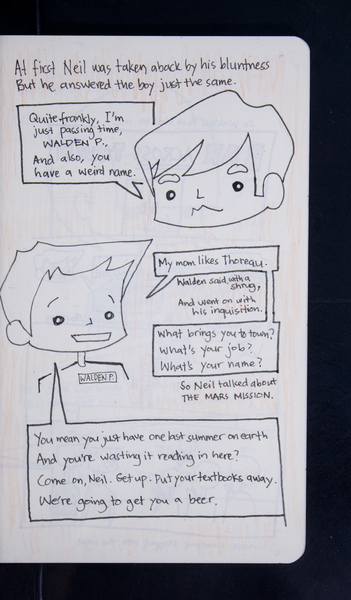 At first Neil was taken aback by his bluntness
But he answered the boy just the same.
Quite frankly, I'm
just passing time,
WALDEN P.,
And also, you
have a weird name.
My mom likes Thoreau.
Walden said with a
shrug,
And went on with
his inquisition.
What brings you to town?
What's your job?
What's your name?
WALDEN P.
So Neil talked about
THE MARS MISSION.
You mean you just have one last summer on earth
And you're wasting it reading in here?
Come on, Neil. Get up. Put your textbooks away.
We're going to get you a beer.